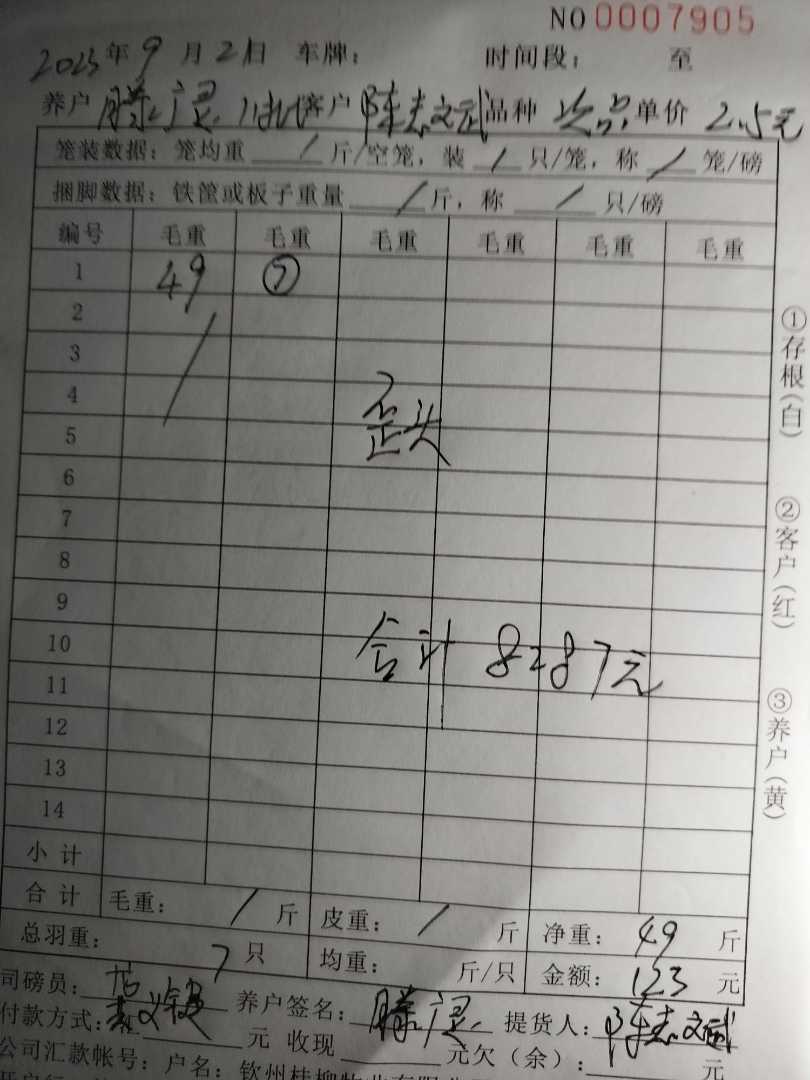 NO 0007905
2023年9月21日 车牌： 时间段： 至
养户 滕广灵 客户 陈志文武 品种 次品 单价 2.5元
笼装数据：笼均重 / 斤/空笼，装 / 只/笼，称 / 笼/磅
捆脚数据：铁筐或板子重量 / 斤，称 / 只/磅
编号 毛重 毛重 毛重 毛重 毛重 毛重
1 49 ⑦
2
3
4
歪头
5
6
7
8
9
10
合计 8287元
11
12
13
14
小计
合计 毛重： / 斤 皮重： / 斤 净重： 49 斤
总羽重： 7 只 均重： 斤/只 金额： 123 元
司磅员： 养户签名： 滕灵 提货人： 陈志文武
付款方式： 元 收现 元欠（余）： 元
公司汇款帐号：户名：钦州桂柳牧业有限公司
①存根（白）
②客户（红）
③养户（黄）